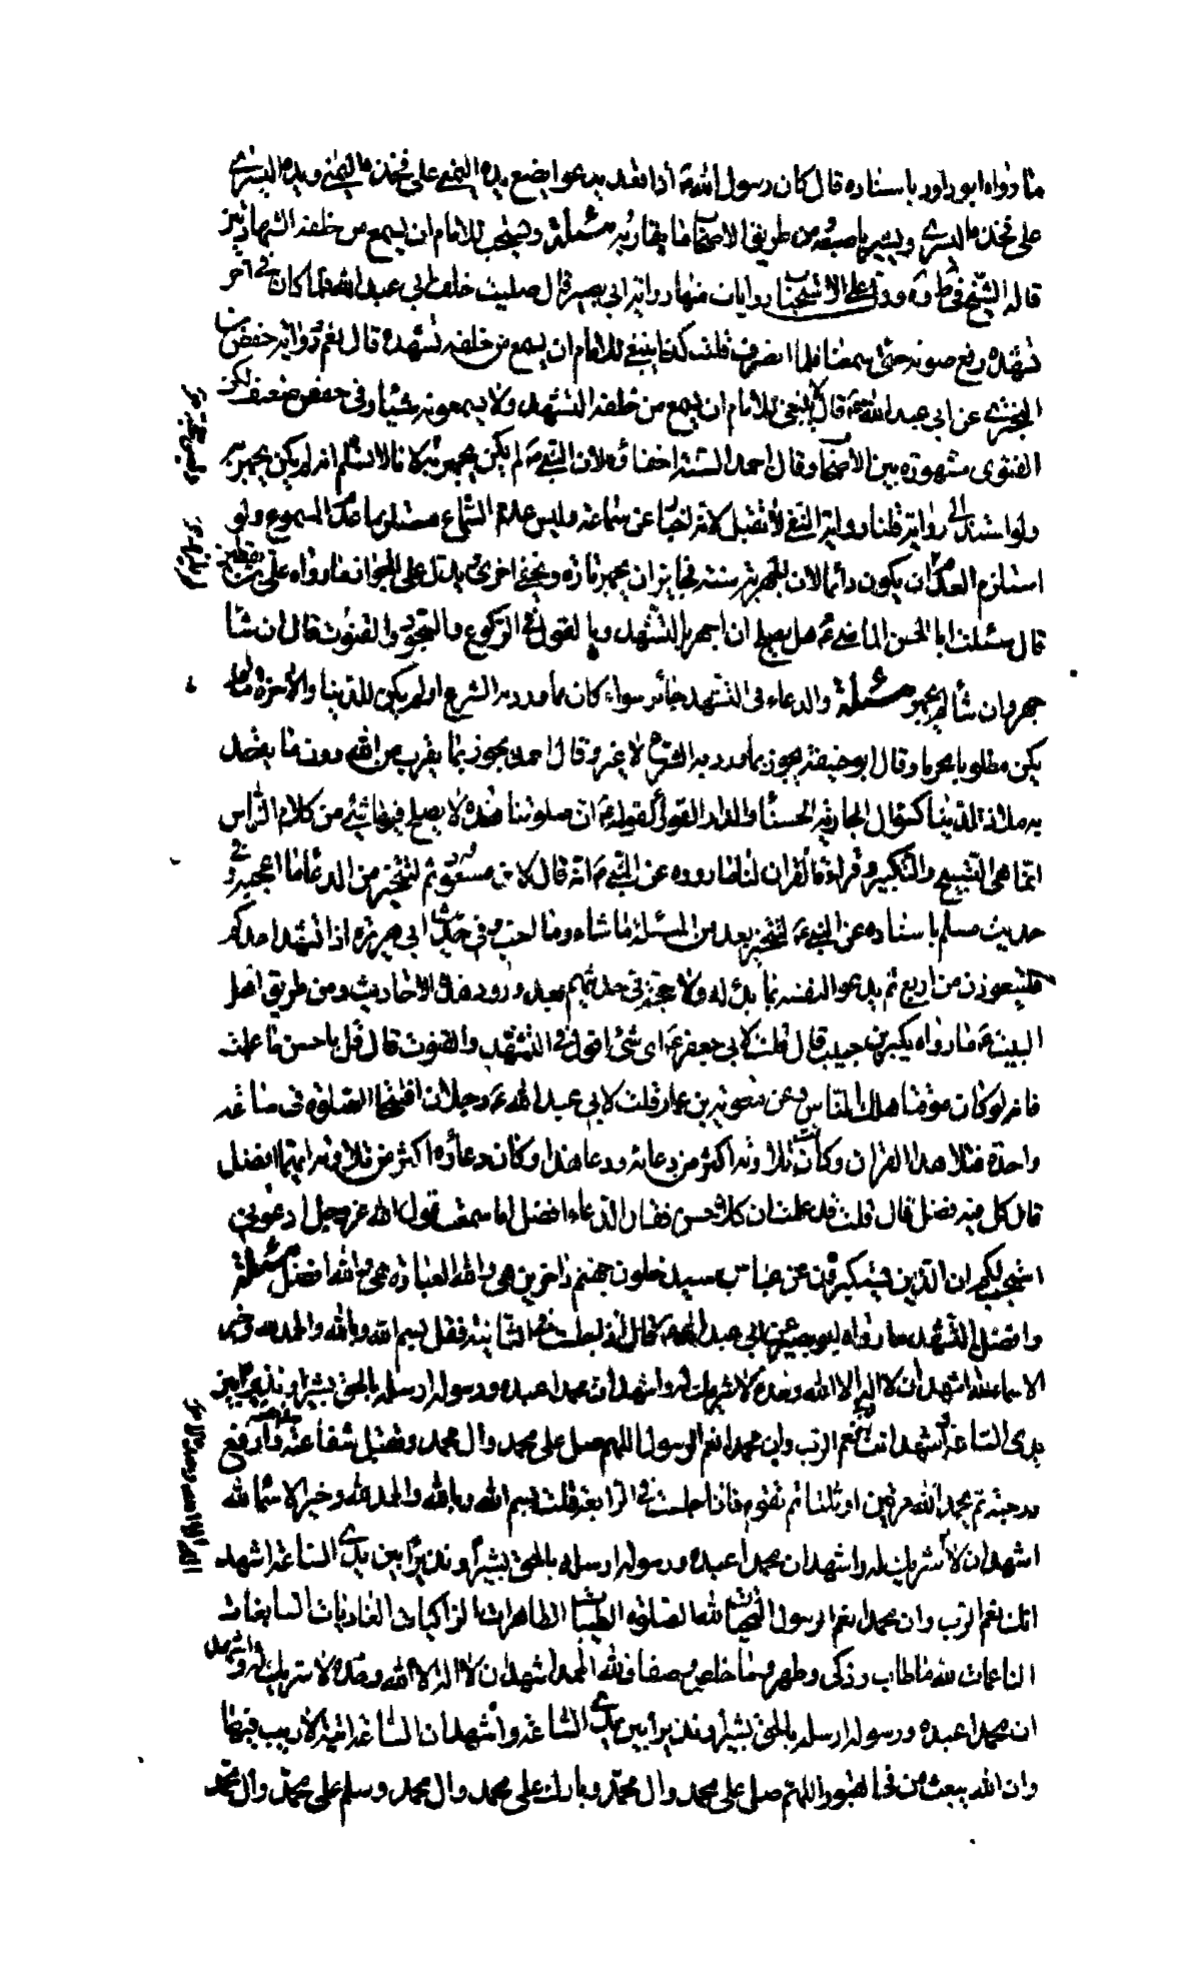 ما رواه ابو داود باسناده قال كان رسول الله ص اذا قعد يدعو يضع يده اليمنى على فخذه اليمنى ويده اليسرى
على فخذه اليسرى ويشير باصبعه من طريق الاصحاب ما يقاربه مسئلة ويستحب للامام ان يسمع من خلفه الشهادتين
قاله الشيخ في ط و ف ودل على الاستحباب روايات منها رواية ابي بصير قال صليت خلف ابي عبد الله فلما كان في آخر
تشهده رفع صوته حتى اسمعنا فلما انصرف قلت كذا ينبغي للامام ان يسمع من خلفه تشهده قال نعم ورواية حفص بن
البختري عن ابي عبد الله ع قال ينبغي للامام ان يسمع من خلفه التشهد ولا يسمعونه شيئا وفي حفص ضعف لكن
الفتوى مشهورة بين الاصحاب وقال احمد السنة اخفاؤه لان النبي ص لم يكن يجهر به لانا لا نسلم انه لم يكن يجهر به
ولو استند الى رواية قلنا رواية النفي لا تقبل لانه اخبار عن سماعه وليس عدم السماع مستلزما عدم المسموع ولو
استلزم العدم ان يكون دائما لان الجهر به سنة فجايز ان يجهر تارة ويخفي اخرى يدل على الجواز ما رواه علي بن يقطين
قال سئلت ابا الحسن الماضي ع هل يصلح ان اجهر بالتشهد وبالقول في الركوع والسجود والقنوت قال ان شاء
جهر وان شاء لم يجهر مسئلة والدعاء في التشهد جائز سواء كان مما ورد به الشرع او لم يكن للدنيا والآخرة ما لم
يكن مطلوبا محرما وقال ابو حنيفة يجوز بما ورد به الشرع لا غير وقال احمد يجوز بما يقرب من الله دون ما يقصد
به ملاذ الدنيا كسؤال الجارية الحسناء والدار القوراء لقوله ع ان صلوتنا هذه لا يصلح فيها شيء من كلام الناس
انما هي التسبيح والتكبير وقراءة القران لنا ما رووه عن النبي ص انه قال لابن مسعود ثم ليتخير من الدعاء ما اعجبه وفي
حديث مسلم باسناده عن النبي ص ليتخير بعد من المسئلة ما شاء وما احب وفي حديث ابي هريرة اذا تشهد احدكم
فليتعوذ من اربع ثم يدعو لنفسه بما بدا له ولا حجة في حديثهم بعد ورود هذه الاحاديث ومن طريق اهل
البيت ع ما رواه بكير بن حبيب قال قلت لابي جعفر ع اي شئ اقول في التشهد والقنوت قال قل باحسن ما علمت
فانه لو كان موقتا هلك الناس وعن معوية بن عمار قلت لابي عبد الله ع رجلان افتتحا الصلوة في ساعة
واحدة فتلا هذا القران وكانت تلاوته اكثر من دعائه ودعا هذا وكان دعاؤه اكثر من تلاوته ايهما افضل
قال كل فيه فضل قال قلت قد علمت ان كلا حسن فقال الدعاء افضل اما سمعت قول الله عز وجل ادعوني
استجب لكم ان الذين يستكبرون عن عبادتي سيدخلون جهنم داخرين هي والله العبادة هي والله افضل مسئلة
وافضل التشهد ما رواه ابو بصير عن ابي عبد الله ع قال اذا جلست في الثانية فقل بسم الله وبالله والحمد لله وخير
الاسماء لله اشهد ان لا اله الا الله وحده لا شريك له واشهد ان محمدا عبده ورسوله ارسله بالحق بشيرا ونذيرا بين
يدي الساعة اشهد انك نعم الرب وان محمدا نعم الرسول اللهم صل على محمد وآل محمد وتقبل شفاعته وارفع
درجته ثم يحمد الله مرتين او ثلثا ثم تقوم فاذا جلست في الرابعة قلت بسم الله وبالله والحمد لله وخير الاسماء لله
اشهد ان لا شريك له واشهد ان محمدا عبده ورسوله ارسله بالحق بشيرا ونذيرا بين يدي الساعة اشهد
انك نعم الرب وان محمدا نعم الرسول التحيات لله الصلوة الطيبات الطاهرات الزاكيات الغاديات السابغات
الناعمات لله ما طاب وزكى وطهر وما خلص وصفا فلله الحمد اشهد ان لا اله الا الله وحده لا شريك له واشهد
ان محمدا عبده ورسوله ارسله بالحق بشيرا ونذيرا بين يدي الساعة واشهد ان الساعة آتية لا ريب فيها
وان الله يبعث من في القبور اللهم صل على محمد وال محمد وبارك على محمد وال محمد وسلم على محمد وال محمد